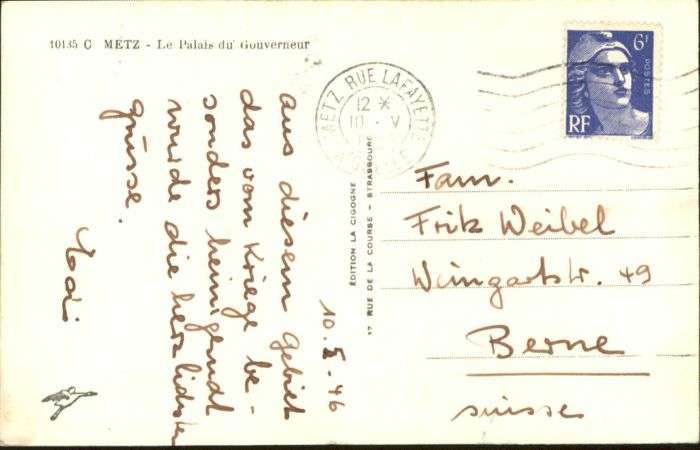 10135 C METZ - Le Palais du Gouverneur
METZ RUE LAFAYETTE
12 *
10 - V
6F
POSTES
RF
ÉDITION LA CIGOGNE
17 RUE DE LA COURSE - STRASBOURG
10. 5. 46
aus diesem Gebiet
das vom Kriege be-
sonders heimgesucht
wurde die herzlichsten
grüsse.
Fam.
Fritz Weibel
Weingartstr. 49
Berne
suisse